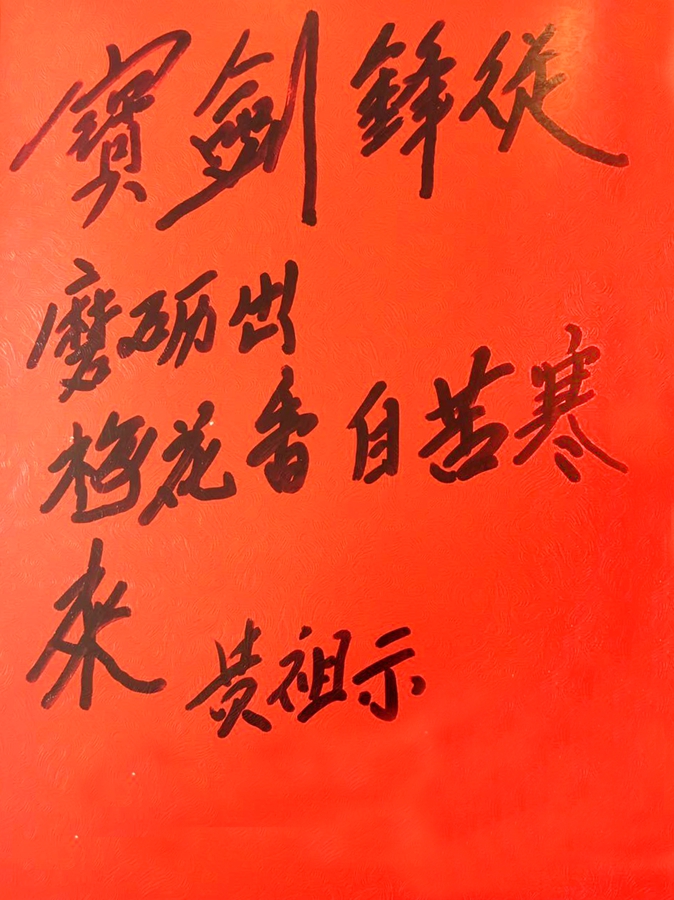 寶劍鋒從
磨砺出
梅花香自苦寒
來
黄祖示